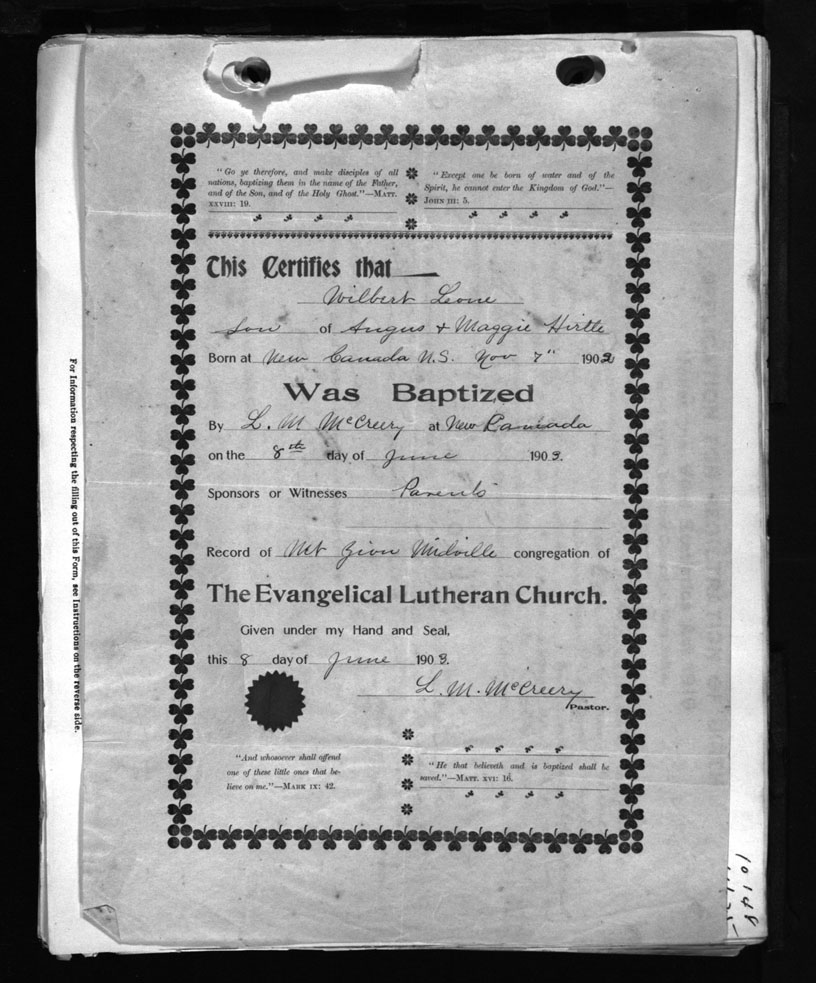 " Go ye therefore, and make disciples of all
nations, baptizing them in the name of the Father,
and of the Son, and of the Holy Ghost."—MATT.
XXVIII: 19.
" Except one be born of water and of the
Spirit, he cannot enter the Kingdom of God."—
JOHN III: 5.
This Certifies that
Wilbert Leone
Son of Angus & Maggie Hirtle
Born at New Canada N.S. Nov 7" 1902
Was Baptized
By L. M McCreery at New Canada
on the 8th day of June 1903.
Sponsors or Witnesses Parents
Record of Mt Zion Milville congregation of
The Evangelical Lutheran Church.
Given under my Hand and Seal,
this 8 day of June 1903.
L. M. McCreery
Pastor.
"And whosoever shall offend
one of these little ones that be-
lieve on me."—MARK IX: 42.
" He that believeth and is baptized shall be
saved."—MATT. XVI: 16.
For Information respecting the filling out of this Form, see Instructions on the reverse side.
10148